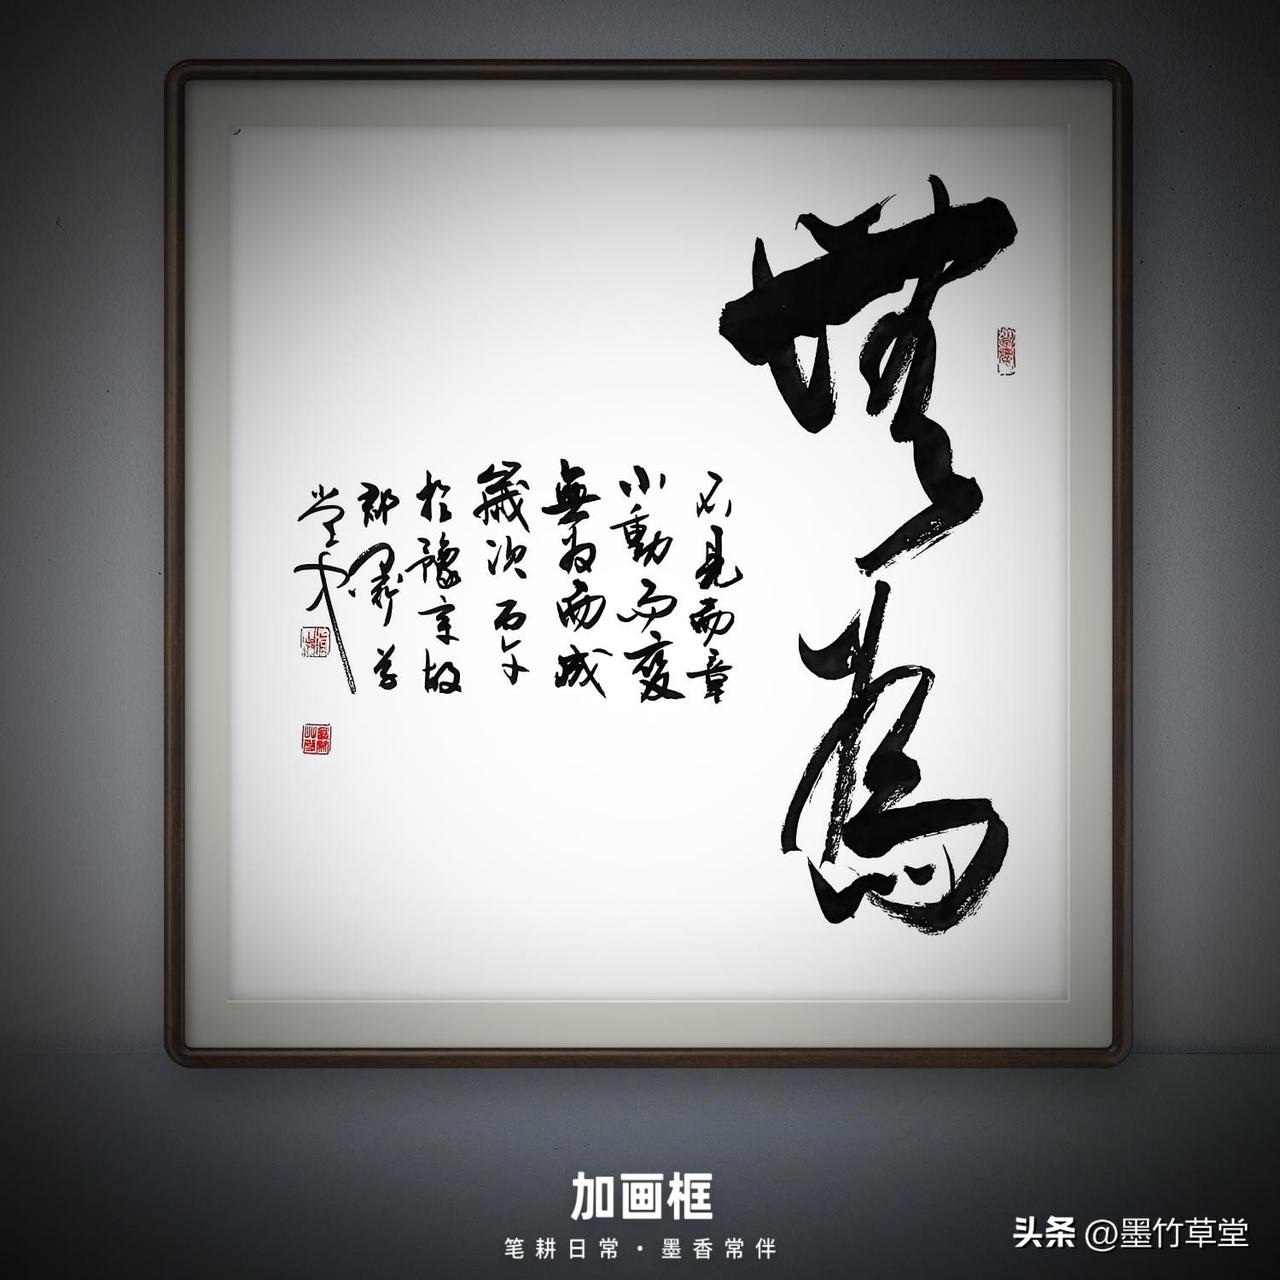 無為
不見而章
不動而變
無为而成
歲次丙午
於豫章故
郡墨竹草
堂
加画框
笔耕日常·墨香常伴
头条 @墨竹草堂